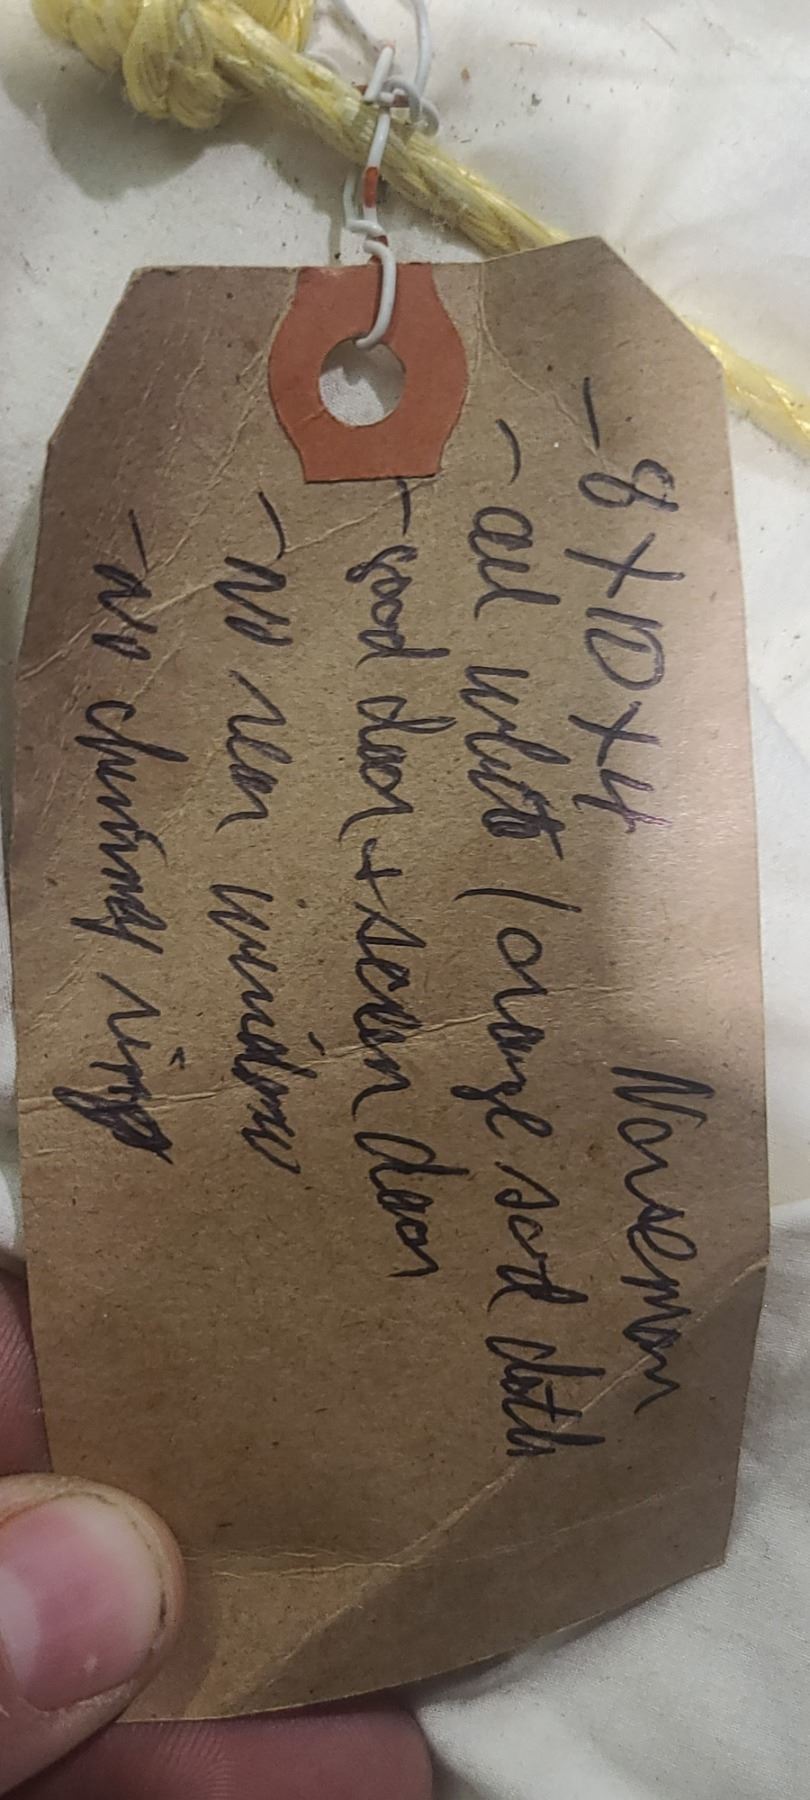 Norseman
- 8 x 10 x 4
- all white / orange sod cloth
- good door + screen door
- NO rear window
- NO chimney ring